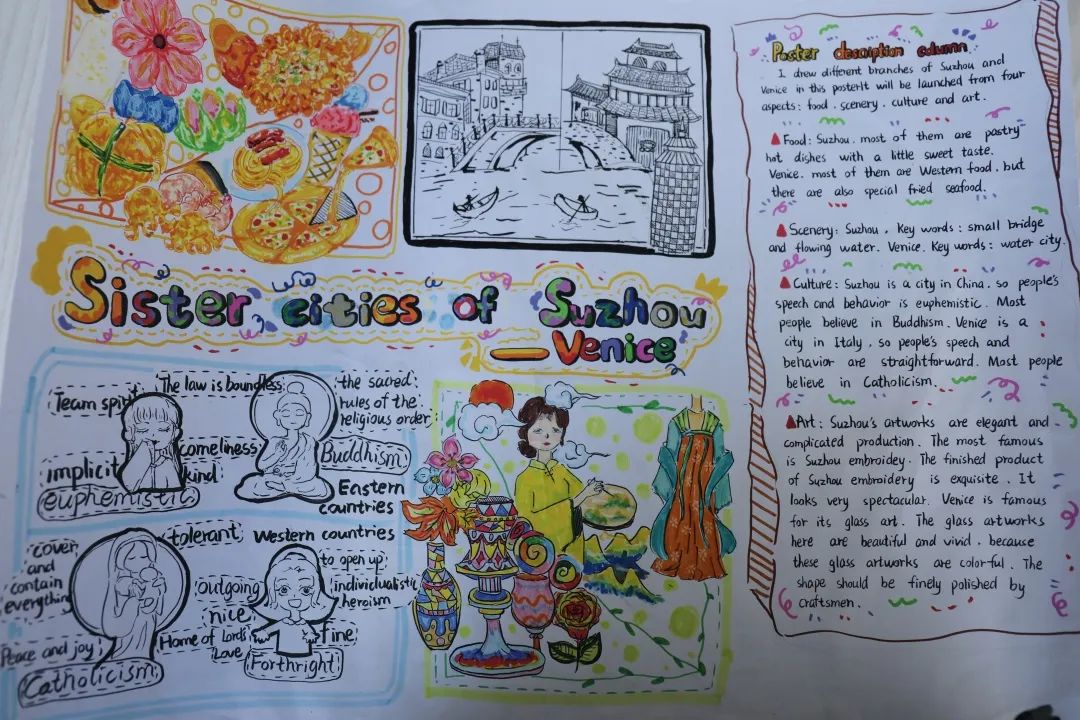 Sister cities of Suzhou
— Venice
Team spirit
The law is boundless
the sacred:
rules of the
religious order:
comeliness
kind
implicit
euphemistic
Buddhism
Eastern
countries
cover
and
contain
everything
tolerant
Western countries
to open up
outgoing
individualistic
heroism
nice
Home of Lords
Love
fine
Peace and joy
Catholicism
Forthright
Poster description column
I drew different branches of Suzhou and
Venice in this posterIt will be launched from four
aspects: food. scenery. culture and art.
▲Food: Suzhou. most of them are pastry
hot dishes with a little sweet taste.
Venice. most of them are Western food. but
there are also special fried seafood.
▲Scenery: Suzhou. Key words: small bridge
and flowing water. Venice. Key words: water city.
▲Culture: Suzhou is a city in China. so people's
speech and behavior is euphemistic. Most
people believe in Buddhism. Venice is a
city in Italy. so people's speech and
behavior are straightforward. Most people
believe in Catholicism.
▲Art: Suzhou's artworks are elegant and
complicated production. The most famous
is Suzhou embroidey. The finished product
of Suzhou embroidery is exquisite. It
looks very spectacular. Venice is famous
for its glass art. The glass artworks
here are beautiful and vivid. because
these glass artworks are colorful. The
shape should be finely polished by
craftsmen.